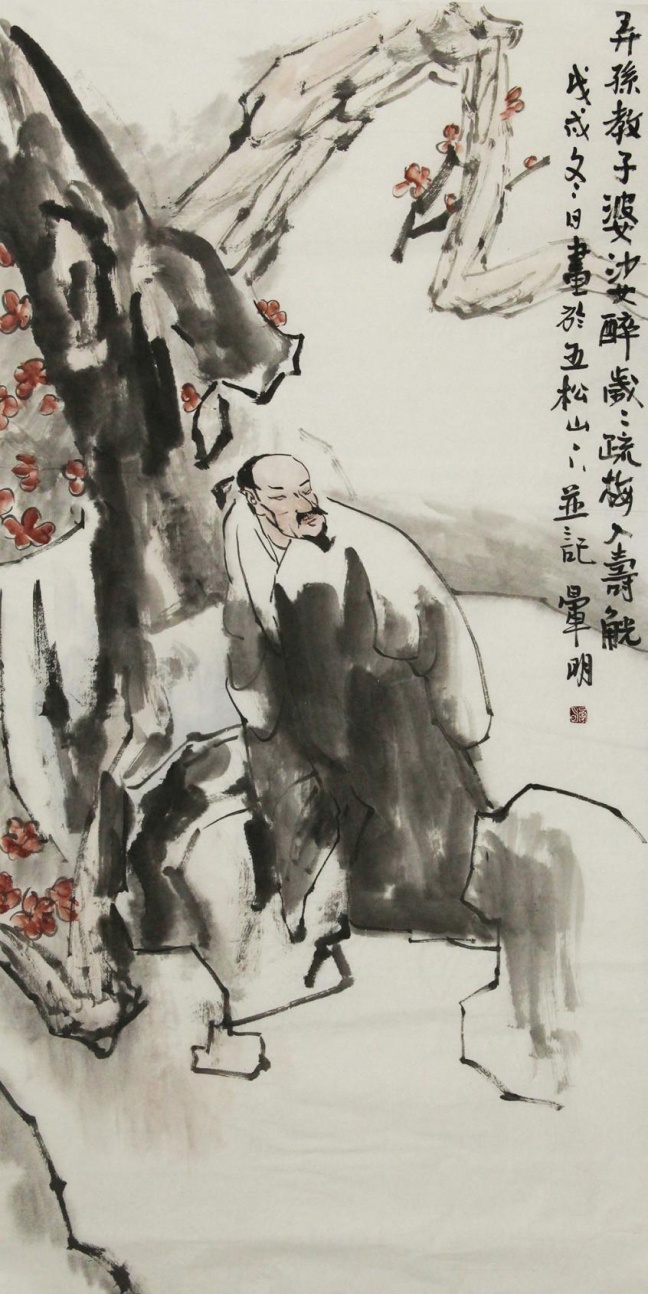 弄孫教子婆娑醉歲〻疏梅入壽觥
戊戌冬日畫於五松山下並記 暈明